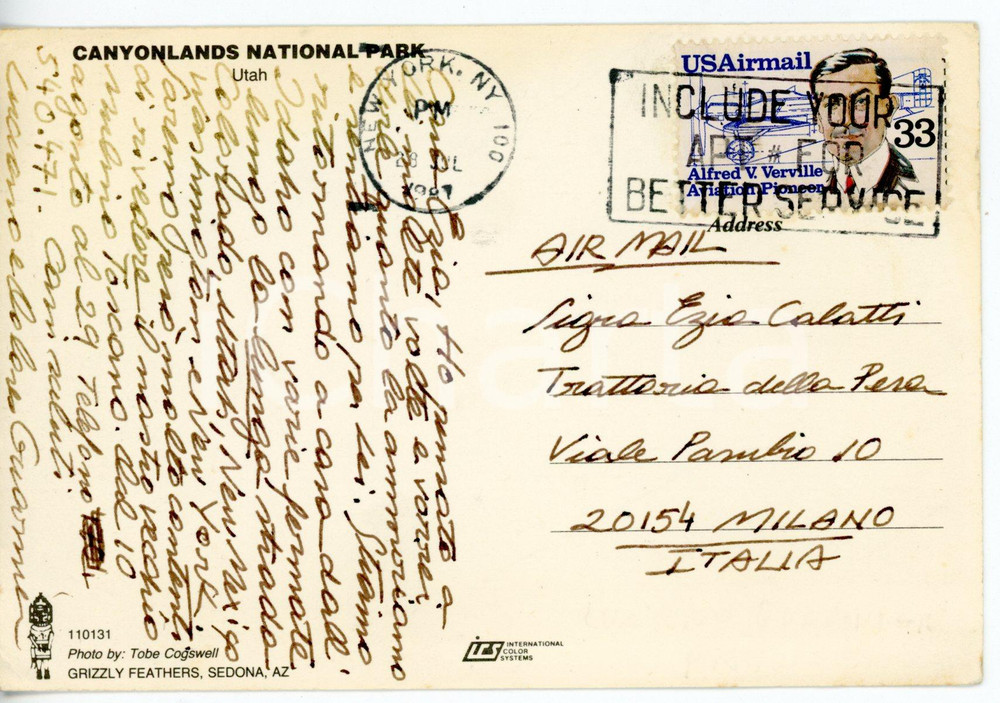 CANYONLANDS NATIONAL PARK
Utah
NEW YORK, NY 100
PM
28 JUL
1987
USAirmail
33
Alfred V. Verville
Aviation Pioneer
INCLUDE YOUR
APT # FOR
BETTER SERVICE
Address
AIR MAIL
Sigra Ezia Calatti
Trattoria della Pesa
Viale Pasubio 10
20154 MILANO
ITALIA
Cara Ezia, Ho pensato a
lei molte volte e vorrei
dirle quanto la ammiriamo
e siamo per lei. Stiamo
ritornando a casa dall'
Idaho con varie fermate
lungo la lunga strada
Colorado, Utah, New Mexico
Washington e New York.
Saremo però molto contenti
di rivedere il nostro vecchio
ambiino toscano. Dal 10
agosto al 29 telefono
5.40.471. Cari saluti.
110131
Photo by: Tobe Cogswell
GRIZZLY FEATHERS, SEDONA, AZ
ics INTERNATIONAL
COLOR
SYSTEMS
Charta